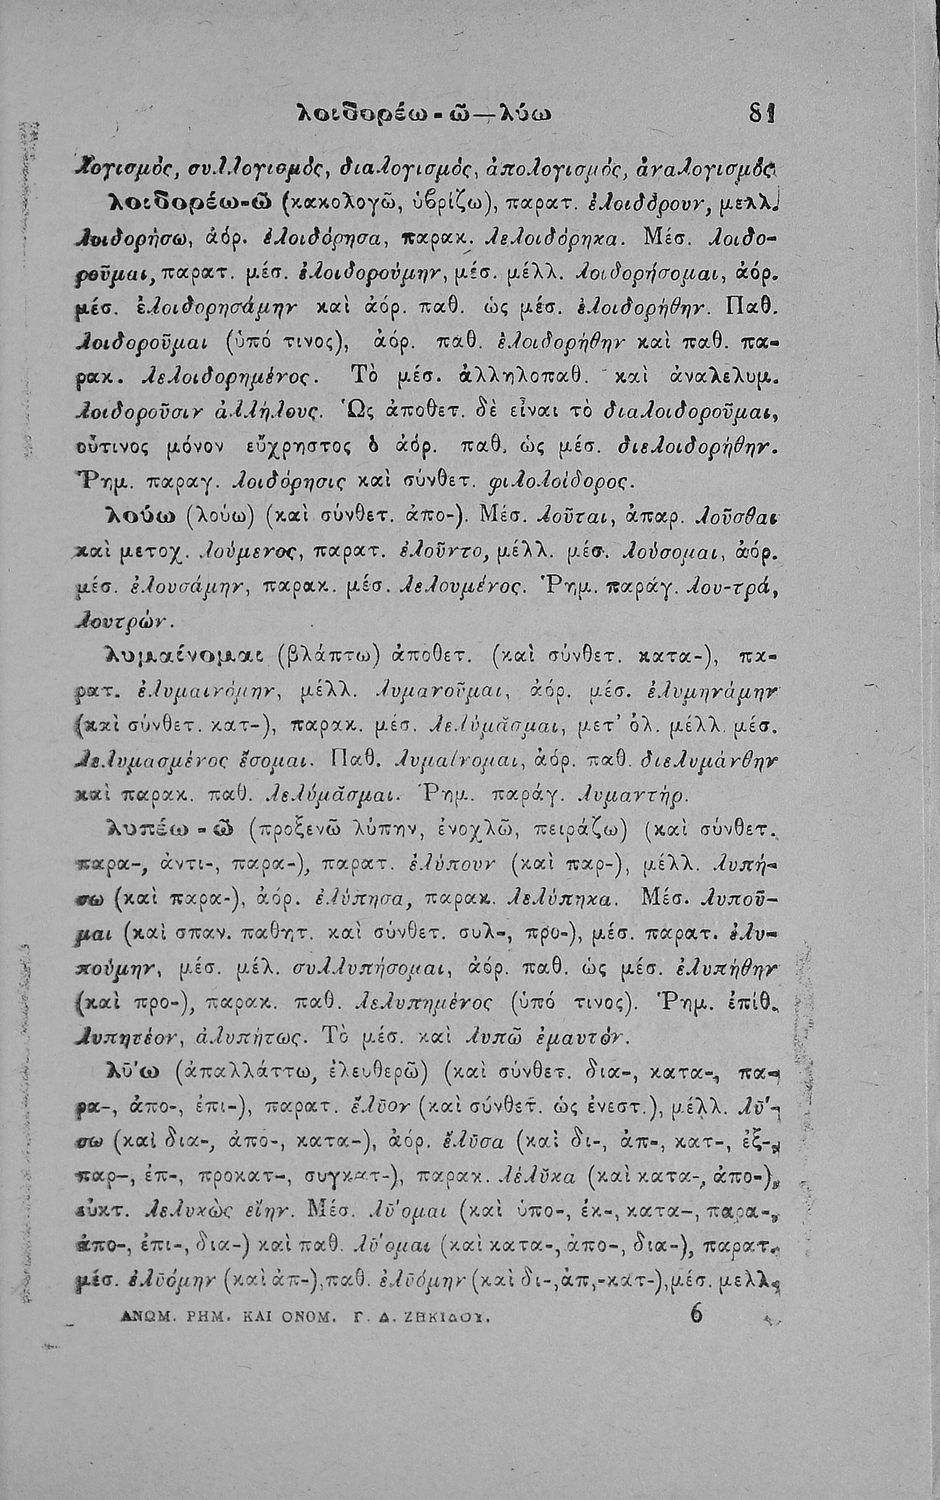 λοιδορέω - ῶ—λύω 81
λογισμός, συλλογισμός, διαλογισμός, ἀπολογισμός, ἀναλογισμός.
λοιδορέω-ῶ (κακολογῶ, ὑβρίζω), παρατ. ἐλοιδόρουν, μελλ.
λοιδορήσω, ἀόρ. ἐλοιδόρησα, παρακ. λελοιδόρηκα. Μέσ. λοιδο-
ροῦμαι, παρατ. μέσ. ἐλοιδορούμην, μέσ. μέλλ. λοιδορήσομαι, ἀόρ.
μέσ. ἐλοιδορησάμην καὶ ἀόρ. παθ. ὡς μέσ. ἐλοιδορήθην. Παθ.
λοιδοροῦμαι (ὑπό τινος), ἀόρ. παθ. ἐλοιδορήθην καὶ παθ. πα-
ρακ. λελοιδορημένος. Τὸ μέσ. ἀλληλοπαθ. καὶ ἀναλελυμ.
λοιδοροῦσιν ἀλλήλους. Ὡς ἀποθετ. δὲ εἶναι τὸ διαλοιδοροῦμαι,
οὗτινος μόνον εὔχρηστος ὁ ἀόρ. παθ. ὡς μέσ. διελοιδορήθην.
Ῥημ. παραγ. λοιδόρησις καὶ σύνθετ. φιλολοίδορος.
λούω (λούω) (καὶ σύνθετ. ἀπο-). Μέσ. λοῦται, ἀπαρ. λοῦσθαι
καὶ μετοχ. λούμενος, παρατ. ἐλοῦντο, μέλλ. μέσ. λούσομαι, ἀόρ.
μέσ. ἐλουσάμην, παρακ. μέσ. λελουμένος. Ῥημ. παράγ. λου-τρά,
λουτρών.
λυμαίνομαι (βλάπτω) ἀποθετ. (καὶ σύνθετ. κατα-), πα-
ρατ. ἐλυμαινόμην, μέλλ. λυμανοῦμαι, ἀόρ. μέσ. ἐλυμηνάμην
(καὶ σύνθετ. κατ-), παρακ. μέσ. λελύμᾱσμαι, μετ' ὀλ. μέλλ. μέσ.
λελυμασμένος ἔσομαι. Παθ. λυμαίνομαι, ἀόρ. παθ. διελυμάνθην
καὶ παρακ. παθ. λελύμᾱσμαι. Ῥημ. παράγ. λυμαντήρ.
λυπέω - ῶ (προξενῶ λύπην, ἐνοχλῶ, πειράζω) (καὶ σύνθετ.
παρα-, ἀντι-, παρα-), παρατ. ἐλύπουν (καὶ παρ-), μέλλ. λυπή-
σω (καὶ παρα-), ἀόρ. ἐλύπησα, παρακ. λελύπηκα. Μέσ. λυποῦ-
μαι (καὶ σπαν. παθητ. καὶ σύνθετ. συλ-, προ-), μέσ. παρατ. ἐλυ-
πούμην, μέσ. μέλ. συλλυπήσομαι, ἀόρ. παθ. ὡς μέσ. ἐλυπήθην
(καὶ προ-), παρακ. παθ. λελυπημένος (ὑπό τινος). Ῥημ. ἐπίθ.
λυπητέον, ἀλυπήτως. Τὸ μέσ. καὶ λυπῶ ἐμαυτόν.
λῡ́ω (ἀπαλλάττω, ἐλευθερῶ) (καὶ σύνθετ. δια-, κατα-, πα-
ρα-, ἀπο-, ἐπι-), παρατ. ἔλῡον (καὶ σύνθετ. ὡς ἐνεστ.), μέλλ. λῡ́-
σω (καὶ δια-, ἀπο-, κατα-), ἀόρ. ἔλῡσα (καὶ δι-, ἀπ-, κατ-, ἐξ-,
παρ-, ἐπ-, προκατ-, συγκατ-), παρακ. λέλῠκα (καὶ κατα-, ἀπο-),
εὐκτ. λελυκὼς εἴην. Μέσ. λῡ́ομαι (καὶ ὑπο-, ἐκ-, κατα-, παρα-,
ἀπο-, ἐπι-, δια-) καὶ παθ. λῡ́ομαι (καὶ κατα-, ἀπο-, δια-), παρατ.
μέσ. ἐλῡόμην (καὶ ἀπ-), παθ. ἐλῡόμην (καὶ δι-,ἀπ,-κατ-),μέσ. μελλ.
ΑΝΩΜ. ΡΗΜ. ΚΑΙ ΟΝΟΜ. Γ. Δ. ΖΗΚΙΔΟΥ. 6